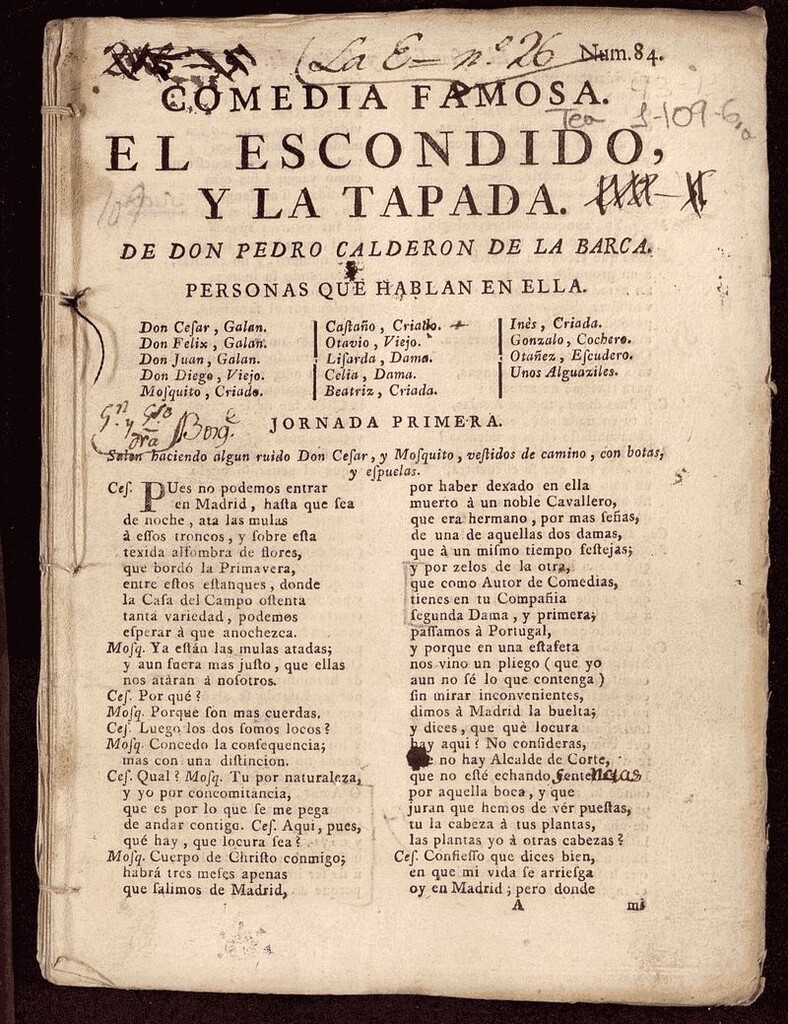 La E– nº 26 Num. 84.
COMEDIA FAMOSA.
Tea 1-109-6,a
EL ESCONDIDO,
Y LA TAPADA.
DE DON PEDRO CALDERON DE LA BARCA.
PERSONAS QUE HABLAN EN ELLA.
Don Ceſar, Galan.
Don Felix, Galan.
Don Juan, Galan.
Don Diego, Viejo.
Moſquito, Criado.
Caſtaño, Criado.
Otavio, Viejo.
Liſarda, Dama.
Celia, Dama.
Beatriz, Criada.
Inès, Criada.
Gonzalo, Cochero.
Otañez, Eſcudero.
Unos Alguaziles.
JORNADA PRIMERA.
Salen haciendo algun ruido Don Ceſar, y Moſquito, veſtidos de camino, con botas,
y eſpuelas.
Ceſ. PUes no podemos entrar
en Madrid, haſta que ſea
de noche, ata las mulas
à eſſos troncos, y ſobre eſta
texida alfombra de flores,
que bordó la Primavera,
entre eſtos eſtanques, donde
la Caſa del Campo oſtenta
tanta variedad, podemos
eſperar à que anochezca.
Moſq. Ya eſtán las mulas atadas;
y aun fuera mas juſto, que ellas
nos atàran à noſotros.
Ceſ. Por qué?
Moſq. Porque ſon mas cuerdas.
Ceſ. Luego los dos ſomos locos?
Moſq. Concedo la conſequencia;
mas con una diſtincion.
Ceſ. Qual? Moſq. Tu por naturaleza,
y yo por concomitancia,
que es por lo que ſe me pega
de andar contigo. Ceſ. Aqui, pues,
qué hay, que locura ſea?
Moſq. Cuerpo de Chriſto conmigo;
habrá tres meſes apenas
que ſalimos de Madrid,
por haber dexado en ella
muerto à un noble Cavallero,
que era hermano, por mas ſeñas,
de una de aquellas dos damas,
que à un miſmo tiempo feſtejas;
y por zelos de la otra,
que como Autor de Comedias,
tienes en tu Compañia
ſegunda Dama, y primera;
paſſamos à Portugal,
y porque en una eſtafeta
nos vino un pliego (que yo
aun no ſé lo que contenga)
ſin mirar inconvenientes,
dimos à Madrid la buelta;
y dices, que què locura
hay aqui? No conſideras,
no hay Alcalde de Corte,
que no eſté echando ſentencias
por aquella boca, y que
juran que hemos de vér pueſtas,
tu la cabeza à tus plantas,
las plantas yo à otras cabezas?
Ceſ. Confieſſo que dices bien,
en que mi vida ſe arrieſga
oy en Madrid; pero donde
A mi